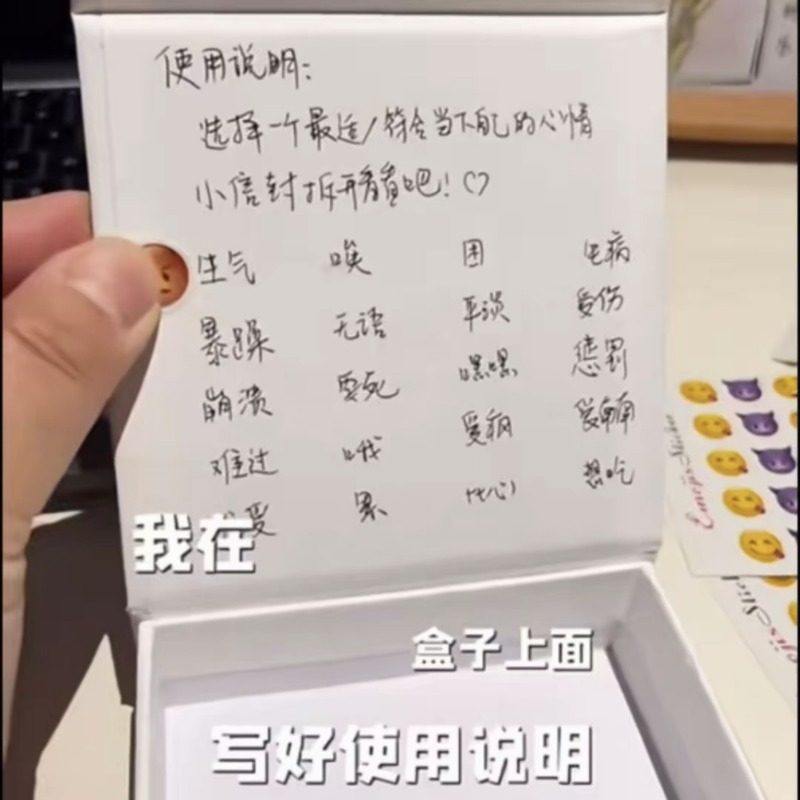 使用说明：
选择一个最适/符合当下自己的心情
小信封拆开看看吧！♡
生气 唉 困
暴躁 无语 平淡 受伤
崩溃 要死 嘿嘿 惩罚
难过
累 想吃
我在
盒子上面
写好使用说明
Emojis Sticker